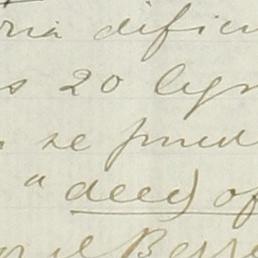 ria dificu
s 20 legu
se pued
"deed of
el Besse